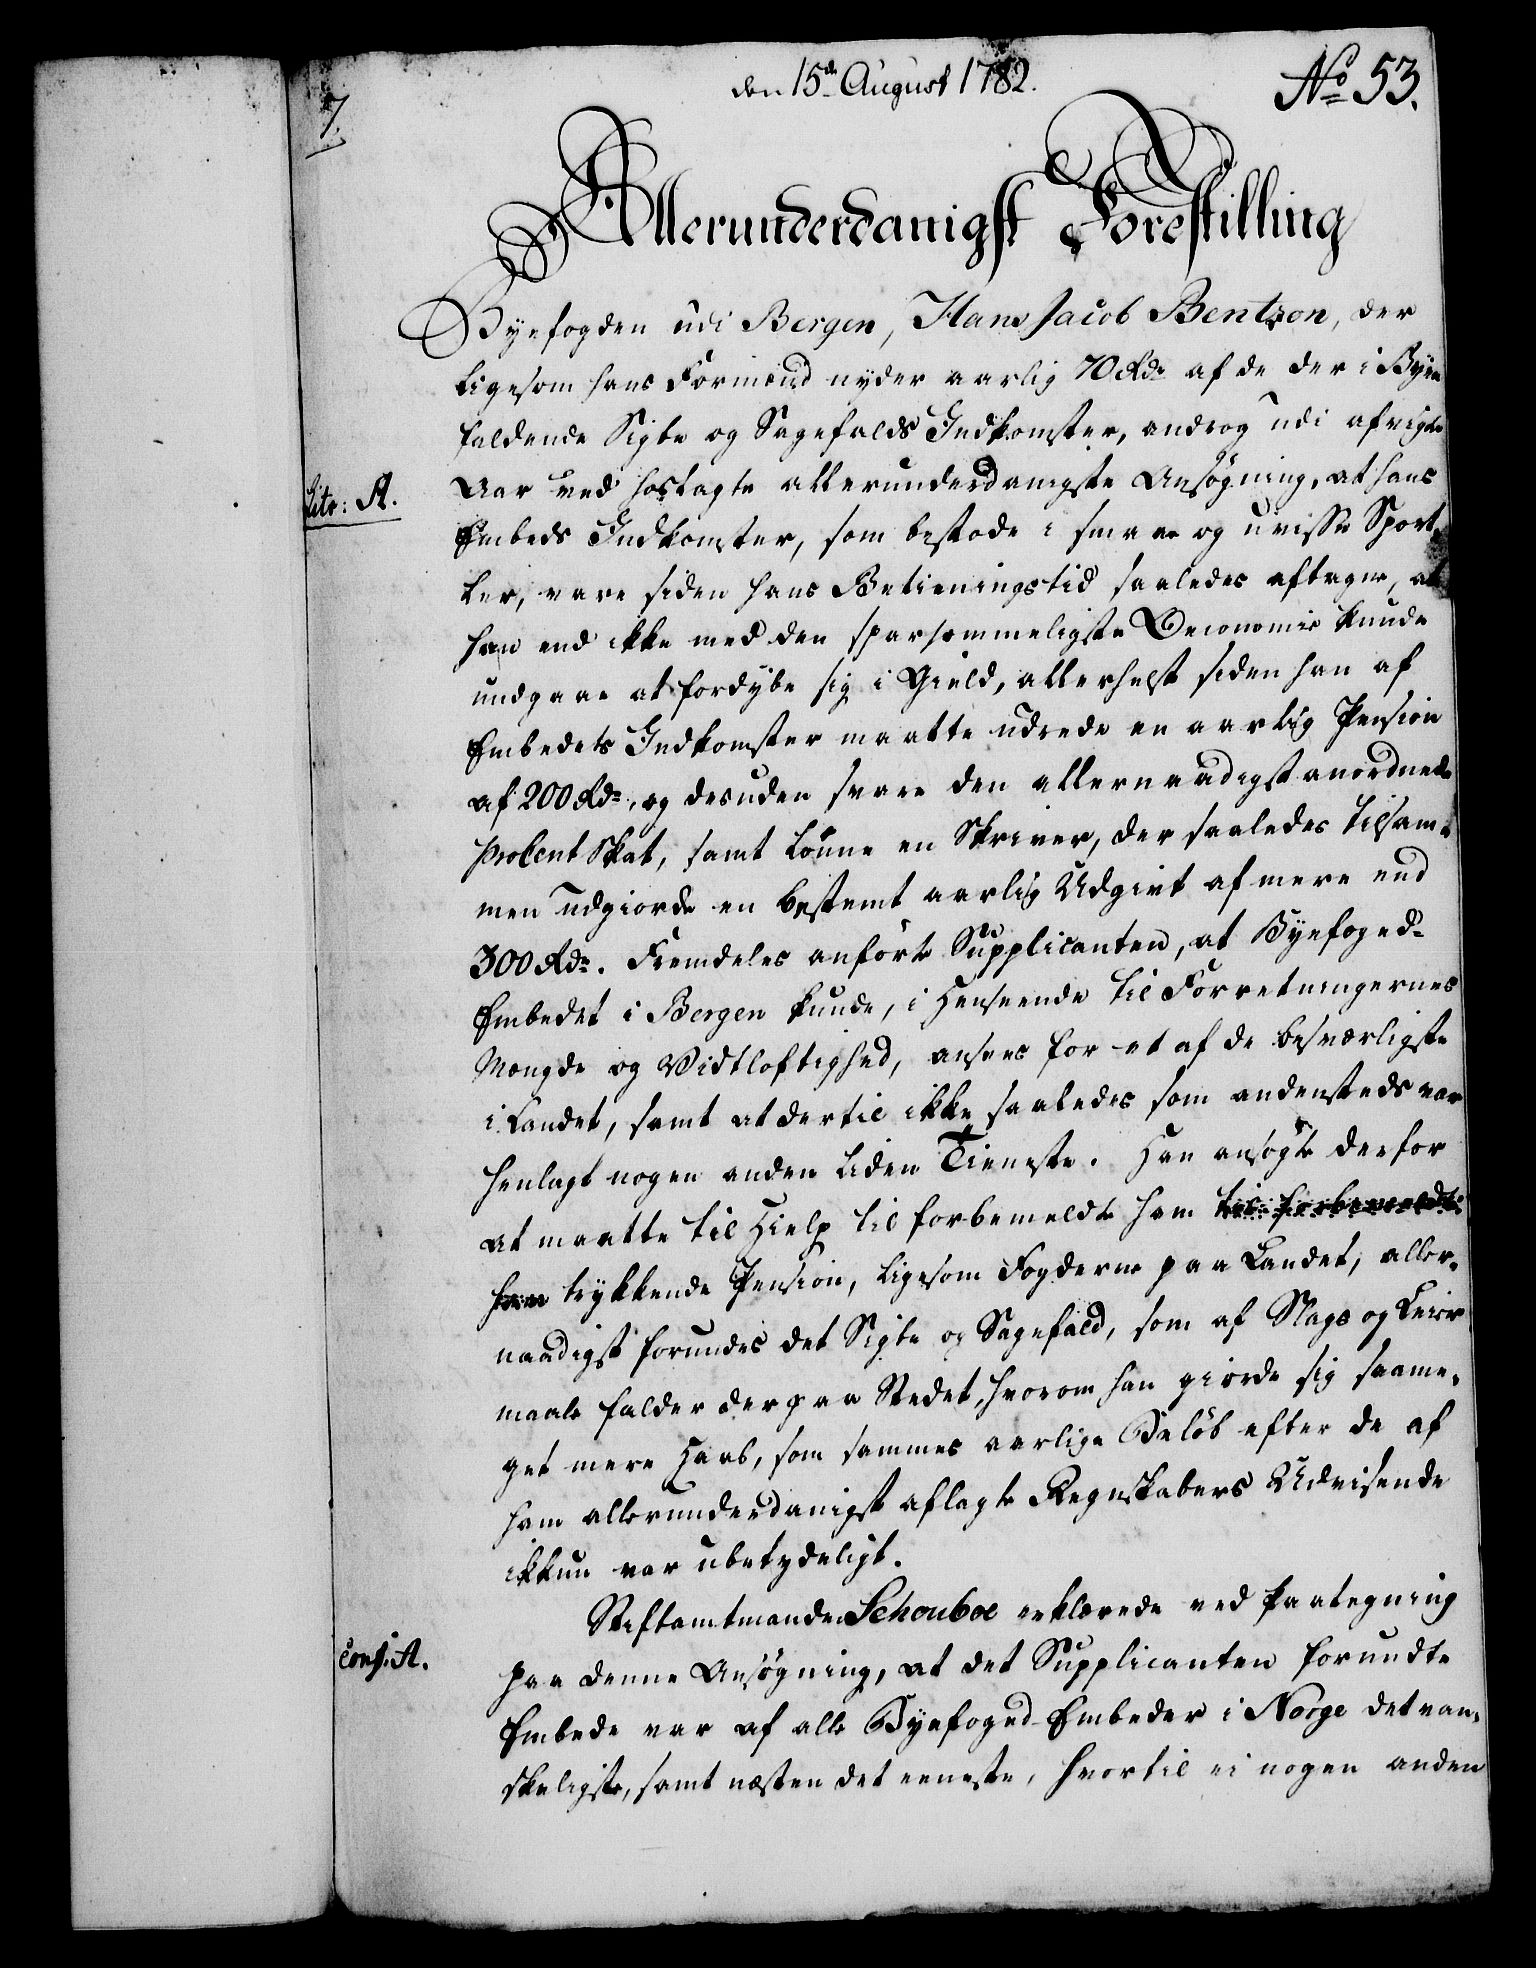 7.
den 15de August 1782.
No 53.
Allerunderdanigst Forestilling
Byefogden udi Bergen, Hans Jacob Bentzon, der
ligesom hans Formænd nyder aarlig 70 Rdr af de der i Byen
faldende Sigte og Sagefalds Indkomster, androg udi afvigte
Litr: A.
Aar ved hoslagte allerunderdanigste Ansøgning, at hans
Embeds Indkomster, som bestode i smaae og uvisse Sport-
ler, vare siden hans Betieningstid saaledes aftagne, at
han end ikke med den sparsommeligste Oeconomie kunde
undgaae at fordybe sig i Gield, allerhelst siden han af
Embedets Indkomster maatte udrede en aarlig Pension
af 200 Rdr, og desuden svare den allernaadigst anordnede
ProCent Skat, samt lønne en Skriver, der saaledes tilsam-
men udgiorde en bestemt aarlig Udgivt af mere end
300 Rdr. Fremdeles anførte Supplicanten, at Byefoged-
Embedet i Bergen kunde, i Henseende til Forretningernes
Mængde og Vidtløftighed, ansees for et af de besværligste
i Landet, samt at dertil ikke saaledes som andensteds var
henlagt nogen anden liden Tieneste. Han ansøgte derfor
at maatte til Hielp til forbemeldte ham til forbemeldte
ham trykkende Pension, ligesom Fogderne paa Landet, aller-
naadigst forundes det Sigte og Sagefald, som af Slags og Leier-
maale falder der paa Stedet, hvorom han giorde sig saame-
get mere Haab, som sammes aarlige Beløb efter de af
ham allerunderdanigst aflagte Regnskabers Udvisende
ikkun var ubetydeligt.
Stiftamtmanden Schouboe erklærede ved Paategning
conf. A.
paa denne Ansøgning, at det Supplicanten forundte
Embede var af alle Byefoged-Embeder i Norge det van-
skeligste, samt næsten det eeneste, hvortil ei nogen anden